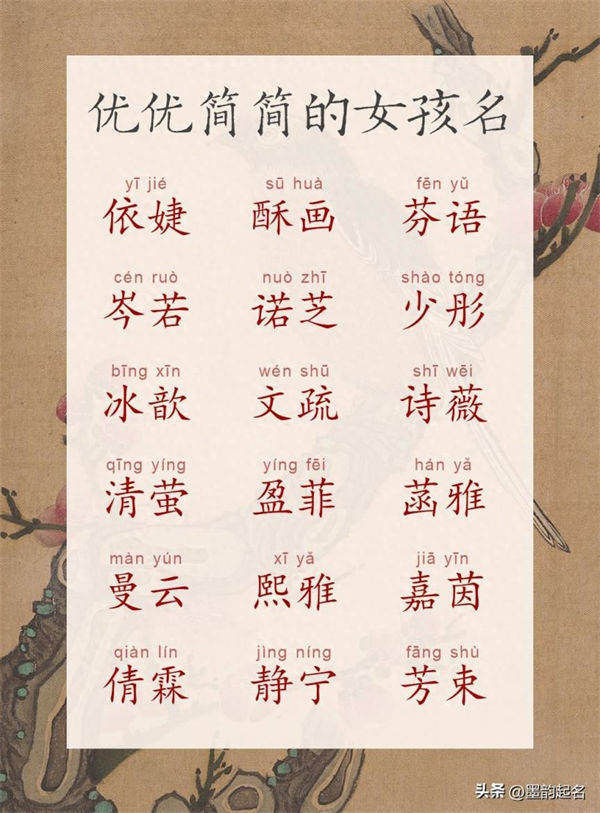 优优简简的女孩名
yī jié sū huà fēn yǔ
依婕 酥画 芬语
cén ruò nuò zhī shào tóng
岑若 诺芝 少彤
bīng xīn wén shū shī wēi
冰歆 文疏 诗薇
qīng yíng yíng fēi hán yǎ
清萤 盈菲 菡雅
màn yún xī yǎ jiā yīn
曼云 熙雅 嘉茵
qiàn lín jìng níng fāng shù
倩霖 静宁 芳束
头条 @墨韵起名